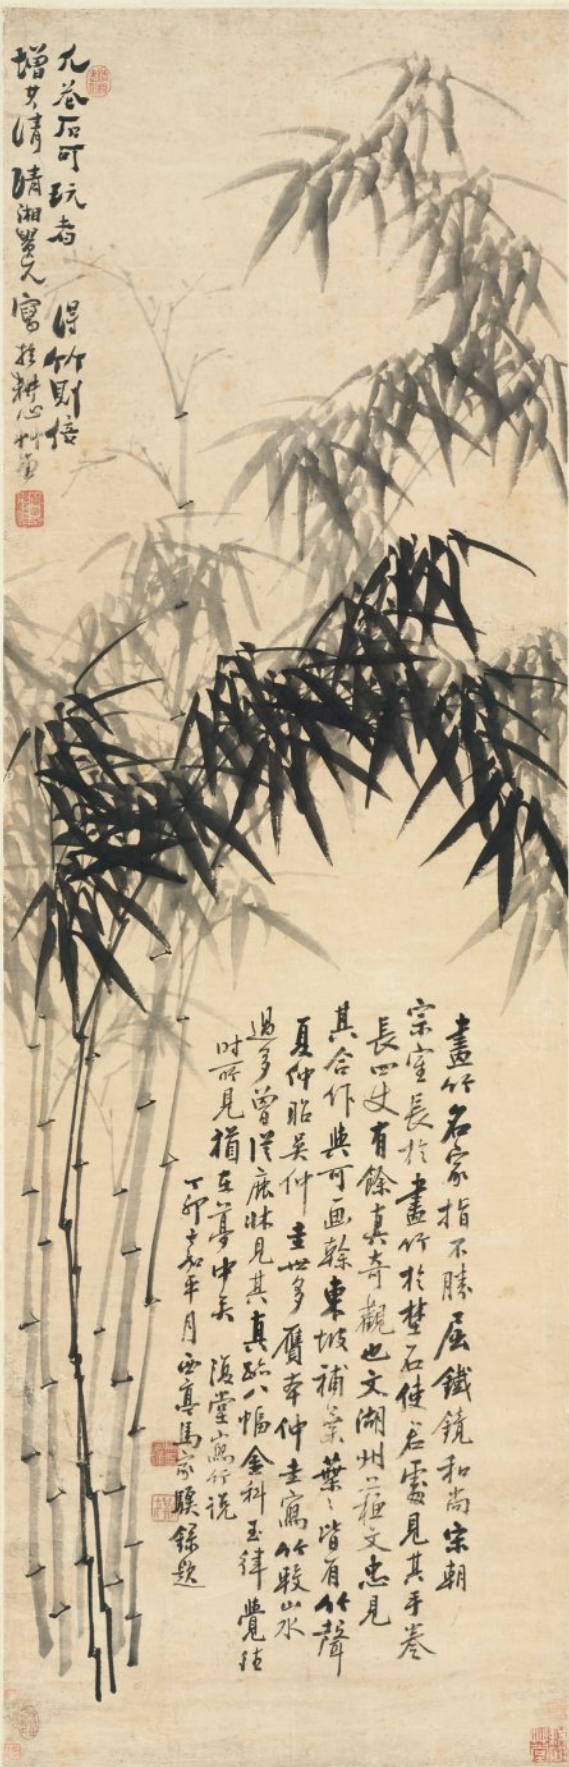 凡卷石可玩者 得竹則倍
增其清 清湘 寫於耕心艸堂
畫竹名家指不勝屈鐵鏡和尚宋朝
宗室長於畫竹於埜石使君處見其手卷
長四丈有餘真奇觀也文湖州蘇文忠見
其合作與可画榦東坡補葉葉〻皆有竹聲
夏仲昭吳仲圭世多贋本仲圭寫竹較山水
過多曾從廉牀見其真跡八幅金科玉律覺
時所見猶在夢中矣 復堂寫竹說
丁卯嘉平月西亭馬家騤錄題